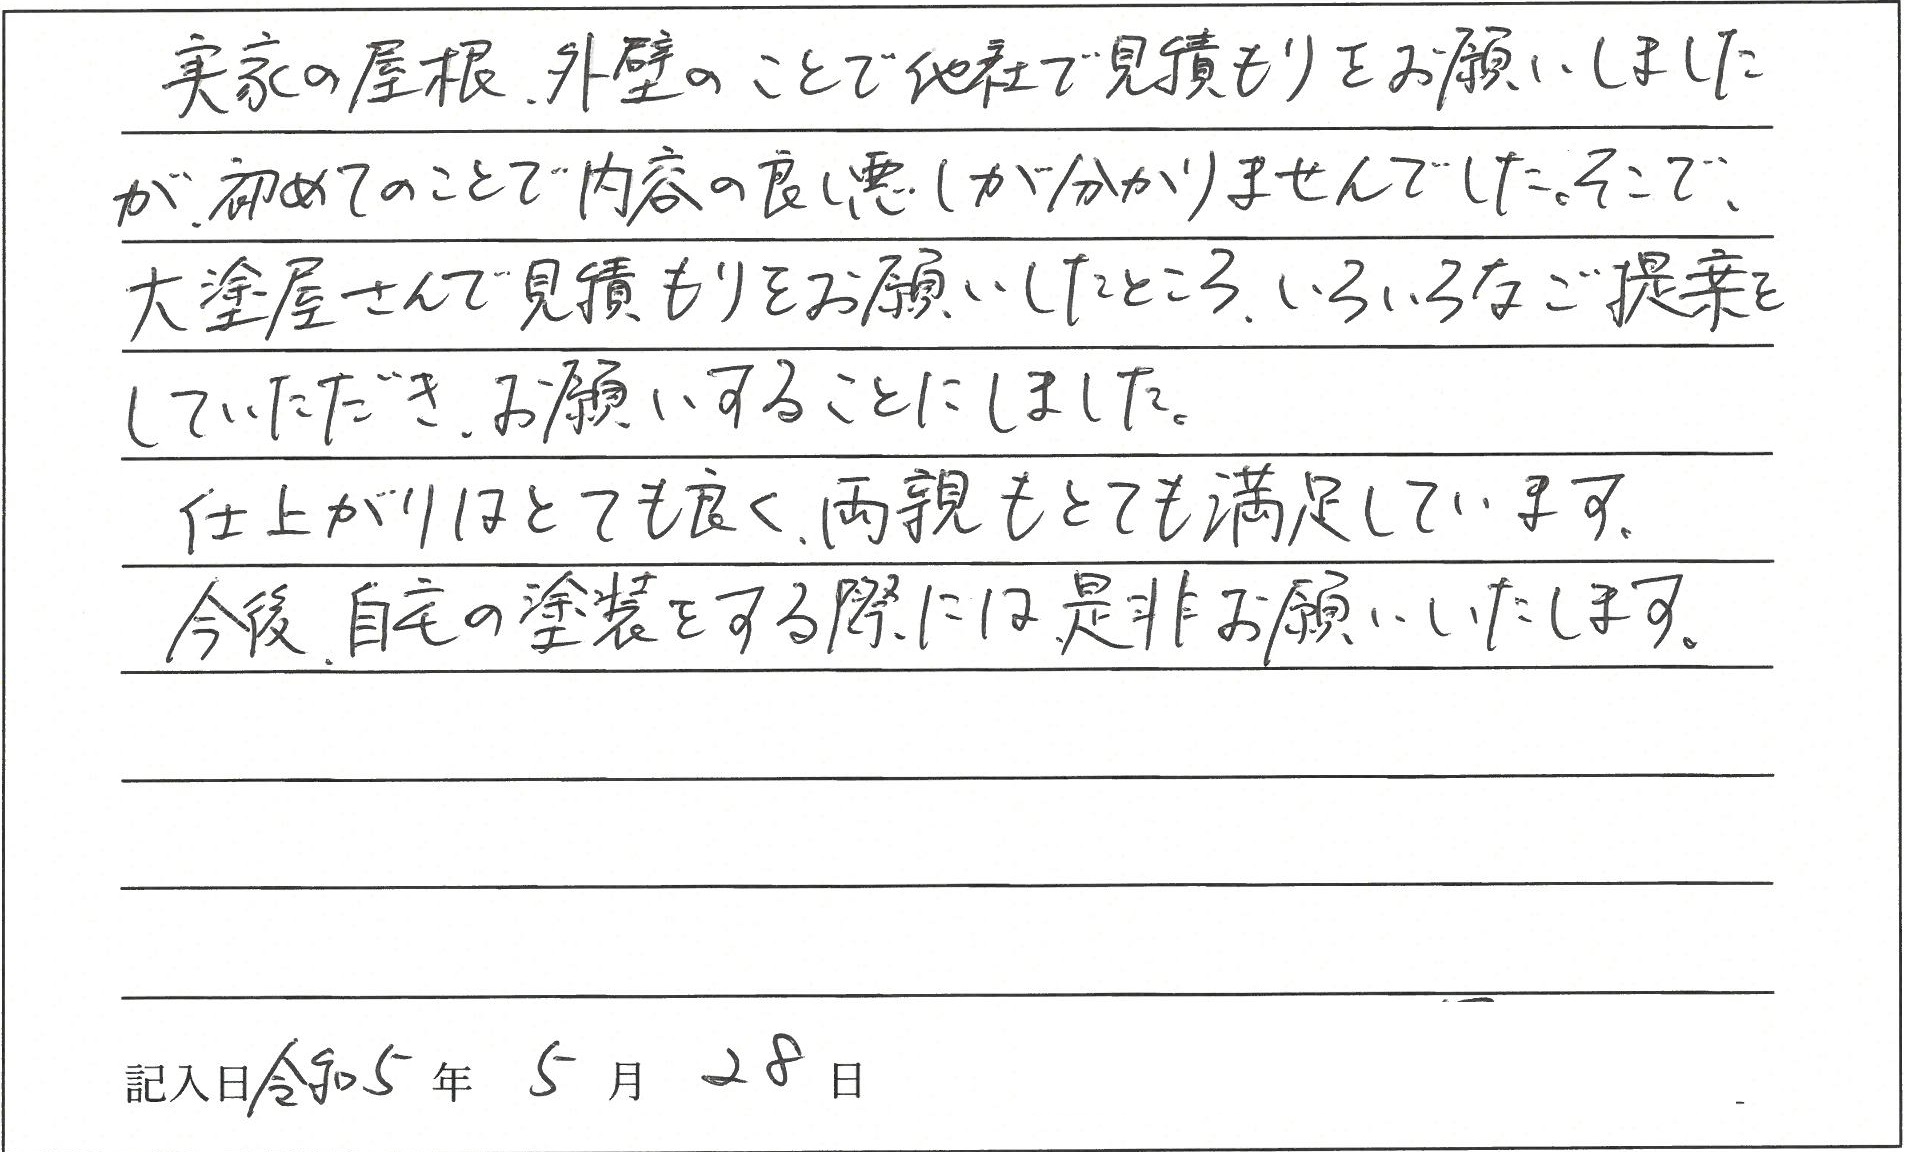 実家の屋根、外壁のことで他社で見積もりをお願いしました
が、初めてのことで内容の良し悪しが分かりませんでした。そこで、
大塗屋さんで見積もりをお願いしたところ、いろいろなご提案を
していただき、お願いすることにしました。
仕上がりはとても良く、両親もとても満足しています。
今後、自宅の塗装をする際には、是非お願いいたします。
記入日 令和5年 5月 28日